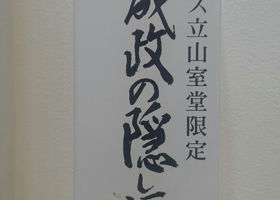 ス立山室堂限定
成政の隠し